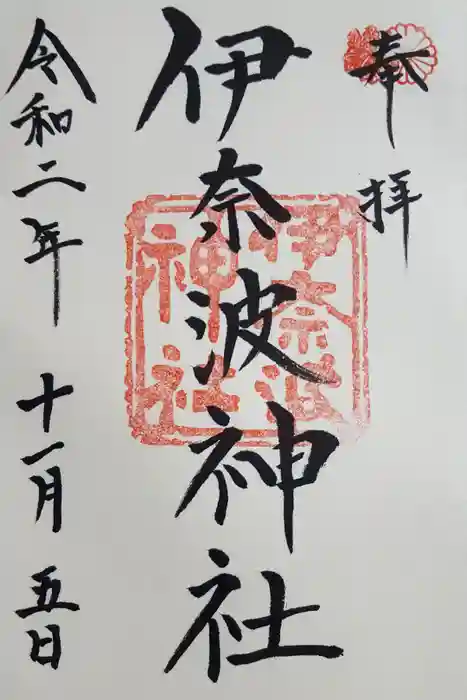 奉拝
伊奈波神社
伊奈波
神社
令和二年 十一月 五日